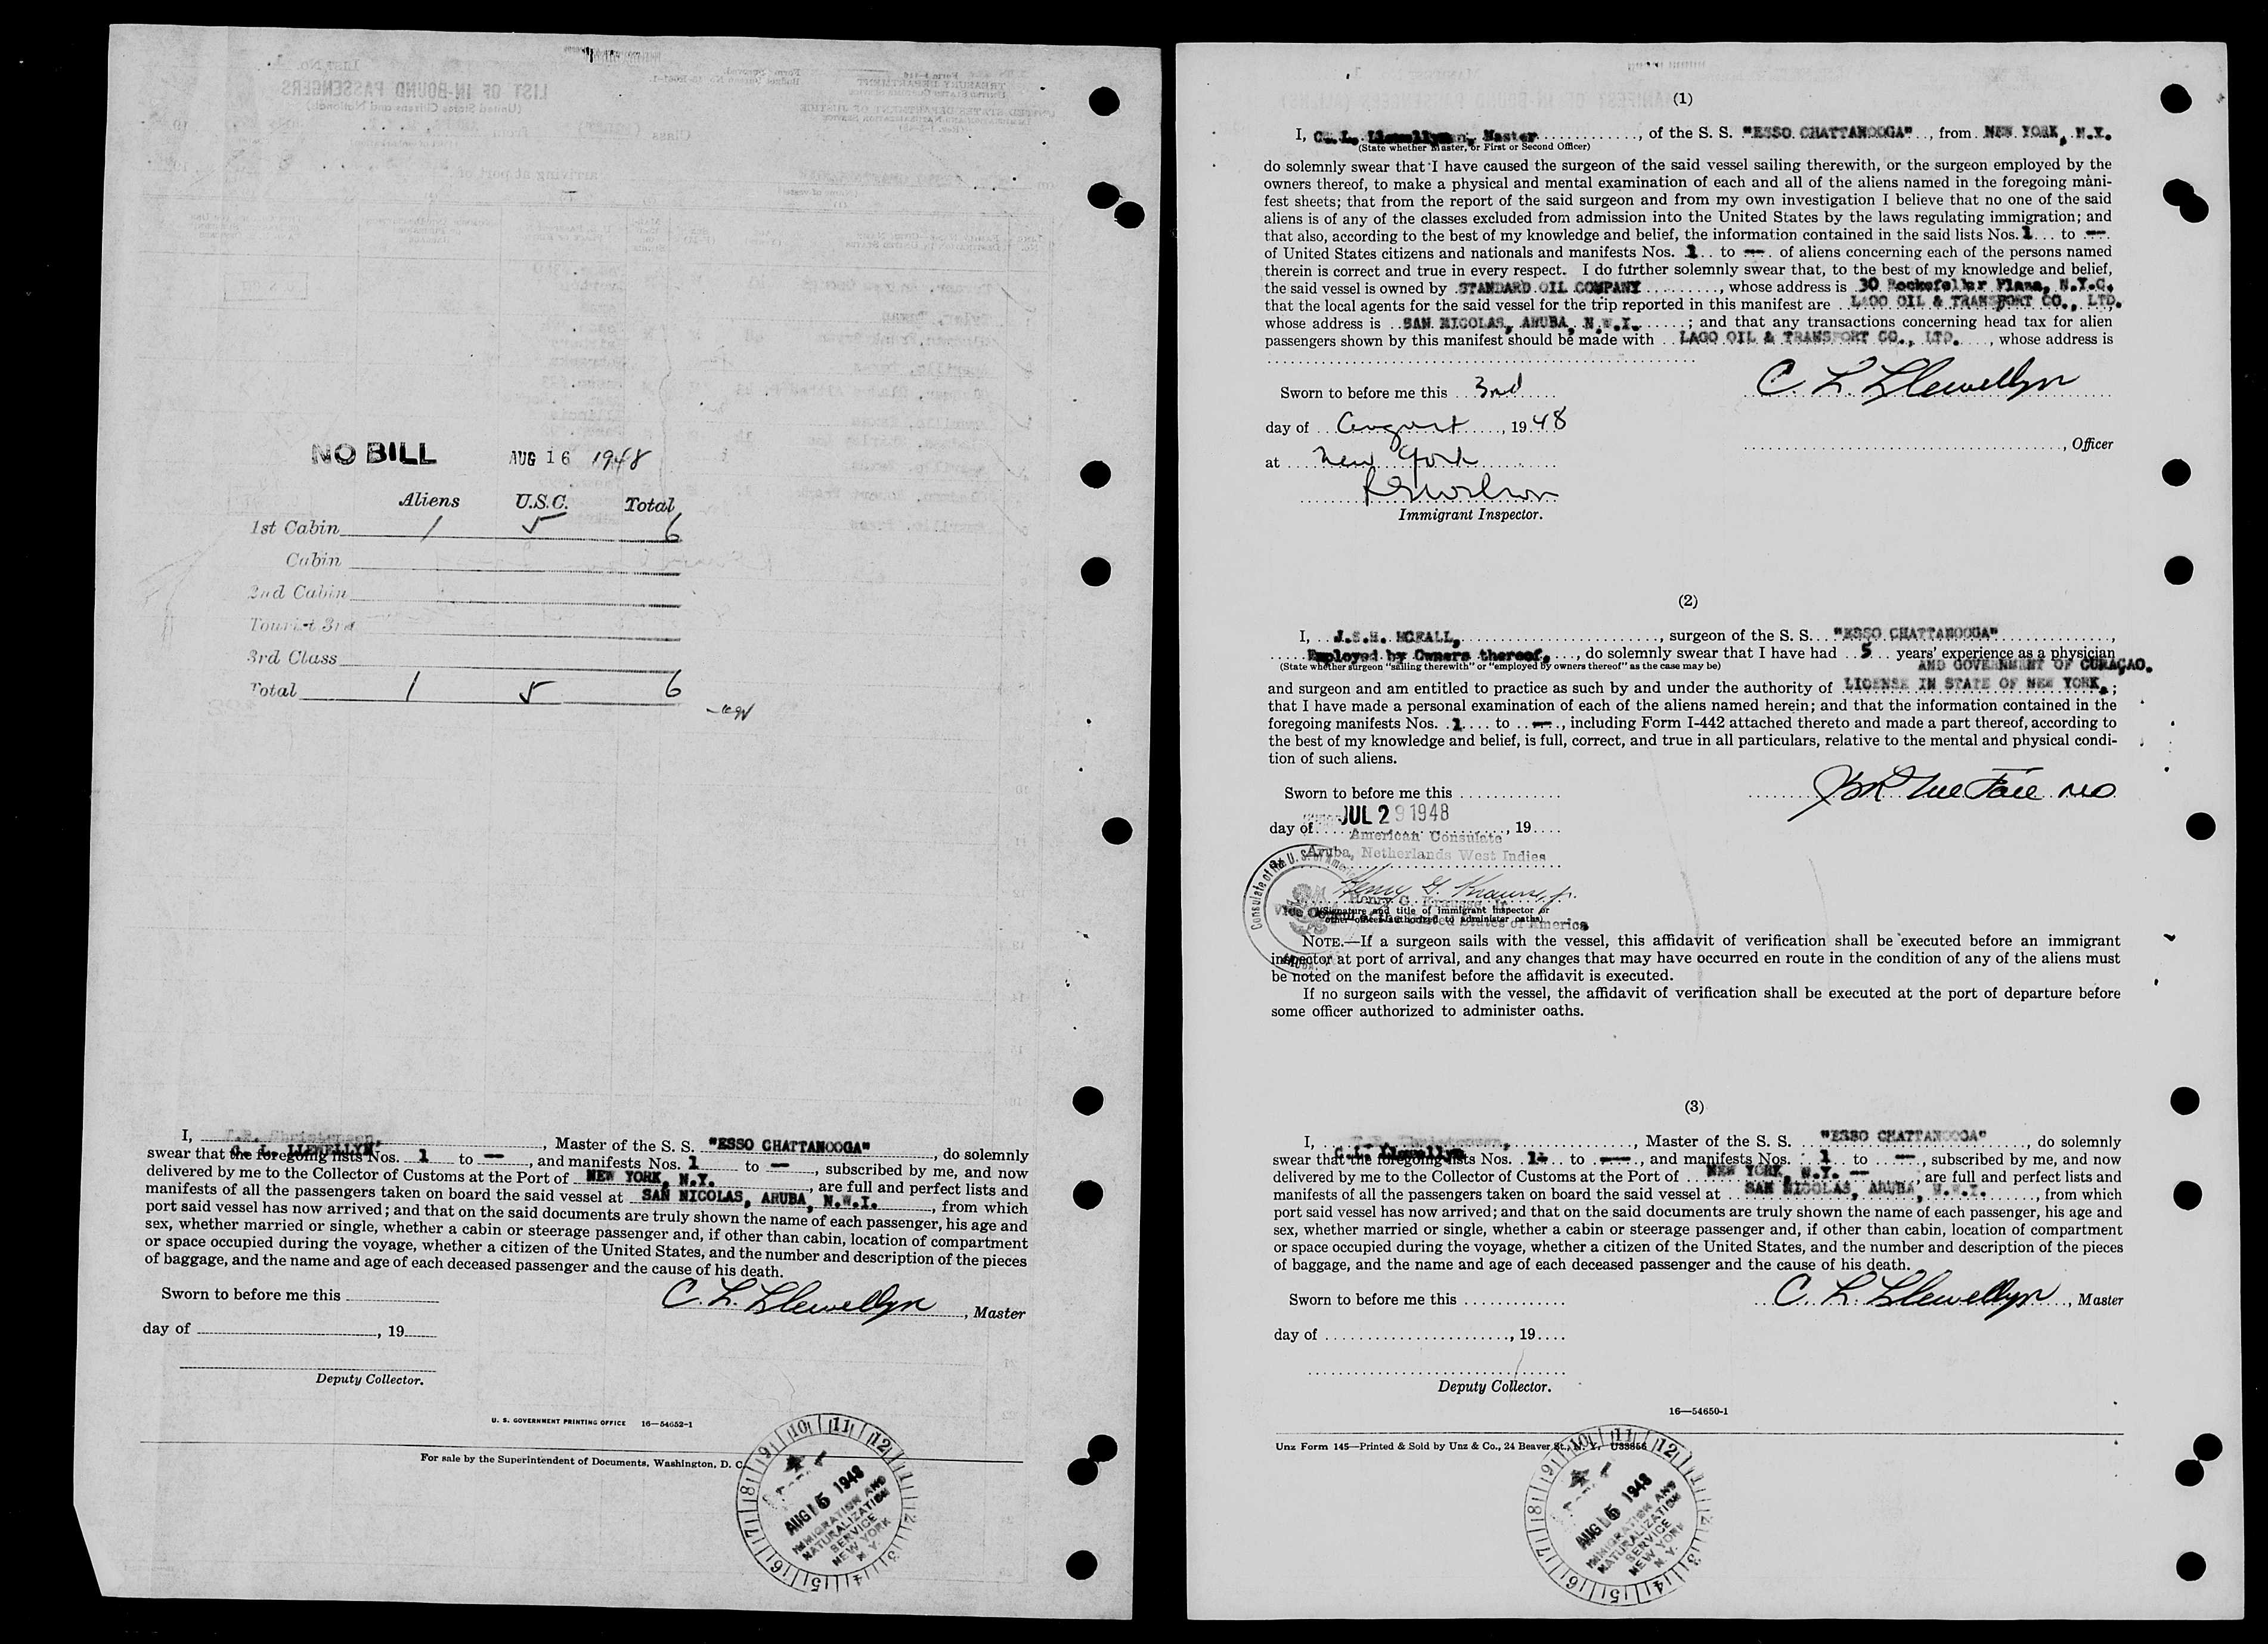 NO BILL AUG 16 1948
Aliens U.S.C. Total
1st Cabin 1 5 6
Cabin
2nd Cabin
Tourist 3rd
3rd Class
Total 1 5 6
I, T.R. Christensen, Master of the S. S. "ESSO CHATTANOOGA", do solemnly
C. L. LLEWELLYN
swear that the foregoing lists Nos. 1 to —, and manifests Nos. 1 to —, subscribed by me, and now
delivered by me to the Collector of Customs at the Port of NEW YORK, N.Y., are full and perfect lists and
manifests of all the passengers taken on board the said vessel at SAN NICOLAS, ARUBA, N.W.I., from which
port said vessel has now arrived; and that on the said documents are truly shown the name of each passenger, his age and
sex, whether married or single, whether a cabin or steerage passenger and, if other than cabin, location of compartment
or space occupied during the voyage, whether a citizen of the United States, and the number and description of the pieces
of baggage, and the name and age of each deceased passenger and the cause of his death.
Sworn to before me this
C. L. Llewellyn, Master
day of , 19
Deputy Collector.
U. S. GOVERNMENT PRINTING OFFICE 16—54652-1
For sale by the Superintendent of Documents, Washington, D. C.
AUG 15 1948
IMMIGRATION AND
NATURALIZATION
SERVICE
NEW YORK
N. Y.
(1)
I, C. L. Llewellyn, Master, of the S. S. "ESSO CHATTANOOGA", from NEW YORK, N.Y.
(State whether Master, or First or Second Officer)
do solemnly swear that I have caused the surgeon of the said vessel sailing therewith, or the surgeon employed by the
owners thereof, to make a physical and mental examination of each and all of the aliens named in the foregoing mani-
fest sheets; that from the report of the said surgeon and from my own investigation I believe that no one of the said
aliens is of any of the classes excluded from admission into the United States by the laws regulating immigration; and
that also, according to the best of my knowledge and belief, the information contained in the said lists Nos. 1 to —
of United States citizens and nationals and manifests Nos. 1 to — of aliens concerning each of the persons named
therein is correct and true in every respect. I do further solemnly swear that, to the best of my knowledge and belief,
the said vessel is owned by STANDARD OIL COMPANY, whose address is 30 Rockefeller Plaza, N.Y.C.
that the local agents for the said vessel for the trip reported in this manifest are LAGO OIL & TRANSPORT CO., LTD.
whose address is SAN NICOLAS, ARUBA, N.W.I.; and that any transactions concerning head tax for alien
passengers shown by this manifest should be made with LAGO OIL & TRANSPORT CO., LTD., whose address is
Sworn to before me this 3rd
C. L. Llewellyn
day of August, 1948
, Officer
at New York
Immigrant Inspector.
(2)
I, J.S.H. MCFALL, surgeon of the S. S. "ESSO CHATTANOOGA",
Employed by Owners thereof, do solemnly swear that I have had 5 years' experience as a physician
(State whether surgeon "sailing therewith" or "employed by owners thereof" as the case may be) AND GOVERNMENT OF CURAÇAO.
and surgeon and am entitled to practice as such by and under the authority of LICENSE IN STATE OF NEW YORK,;
that I have made a personal examination of each of the aliens named herein; and that the information contained in the
foregoing manifests Nos. 1 to —, including Form I-442 attached thereto and made a part thereof, according to
the best of my knowledge and belief, is full, correct, and true in all particulars, relative to the mental and physical condi-
tion of such aliens.
Sworn to before me this
JUL 29 1948
day of , 19
American Consulate
Aruba, Netherlands West Indies
Henry G. Krausse, Jr.
(Signature and title of immigrant inspector or
other officer authorized to administer oaths)
NOTE.—If a surgeon sails with the vessel, this affidavit of verification shall be executed before an immigrant
inspector at port of arrival, and any changes that may have occurred en route in the condition of any of the aliens must
be noted on the manifest before the affidavit is executed.
If no surgeon sails with the vessel, the affidavit of verification shall be executed at the port of departure before
some officer authorized to administer oaths.
(3)
I, T.R. Christensen, Master of the S. S. "ESSO CHATTANOOGA", do solemnly
C.L. Llewellyn
swear that the foregoing lists Nos. 1 to —, and manifests Nos. 1 to —, subscribed by me, and now
delivered by me to the Collector of Customs at the Port of NEW YORK, N.Y. —, are full and perfect lists and
manifests of all the passengers taken on board the said vessel at SAN NICOLAS, ARUBA, N.W.I., from which
port said vessel has now arrived; and that on the said documents are truly shown the name of each passenger, his age and
sex, whether married or single, whether a cabin or steerage passenger and, if other than cabin, location of compartment
or space occupied during the voyage, whether a citizen of the United States, and the number and description of the pieces
of baggage, and the name and age of each deceased passenger and the cause of his death.
Sworn to before me this
C. L. Llewellyn, Master
day of , 19
Deputy Collector.
16—54650-1
Unz Form 145—Printed & Sold by Unz & Co., 24 Beaver St., N. Y. U33856
AUG 15 1948
IMMIGRATION AND
NATURALIZATION
SERVICE
NEW YORK
N. Y.